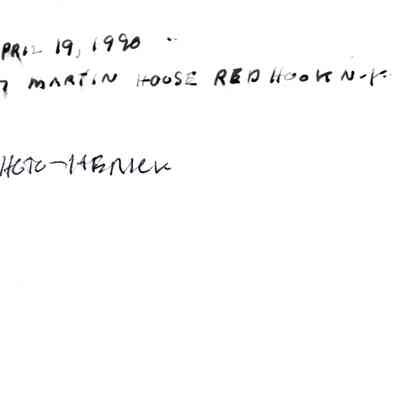 PRIL 19, 1990
MARTIN HOUSE RED HOOK N-Y-
HOTO-HENRICK